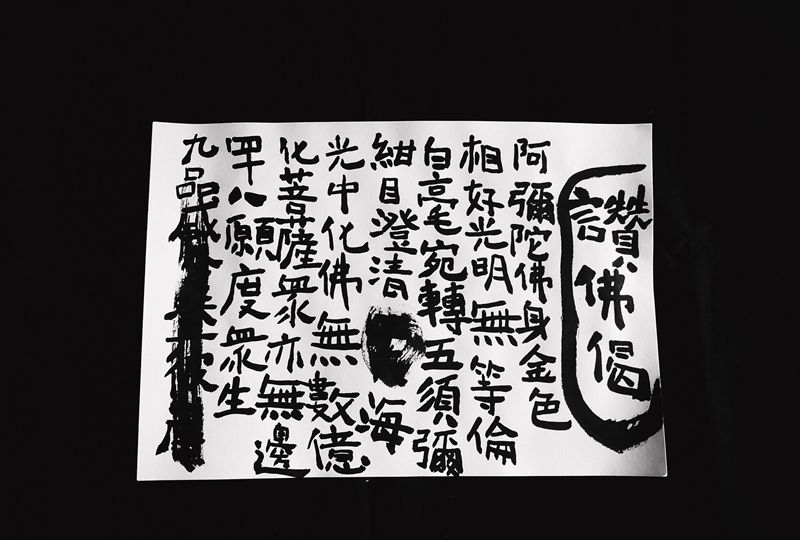 讚佛偈
阿彌陀佛身金色
相好光明無等倫
白毫宛轉五須彌
紺目澄清海
光中化佛無數億
化菩薩眾亦無邊
四十八願度眾生
九品